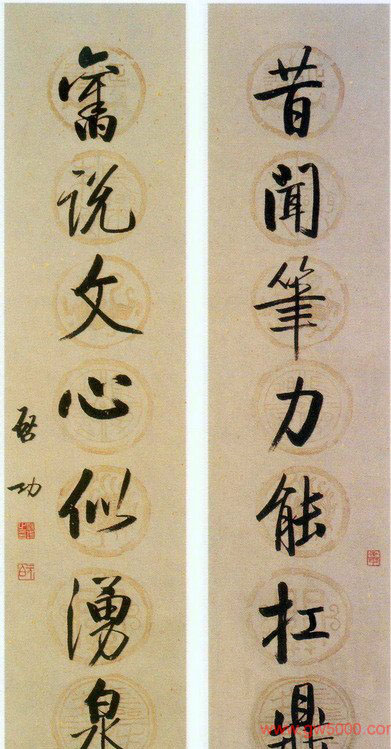 昔闻筆力能扛鼎
舊说文心似湧泉
启功
www.gw5000.com